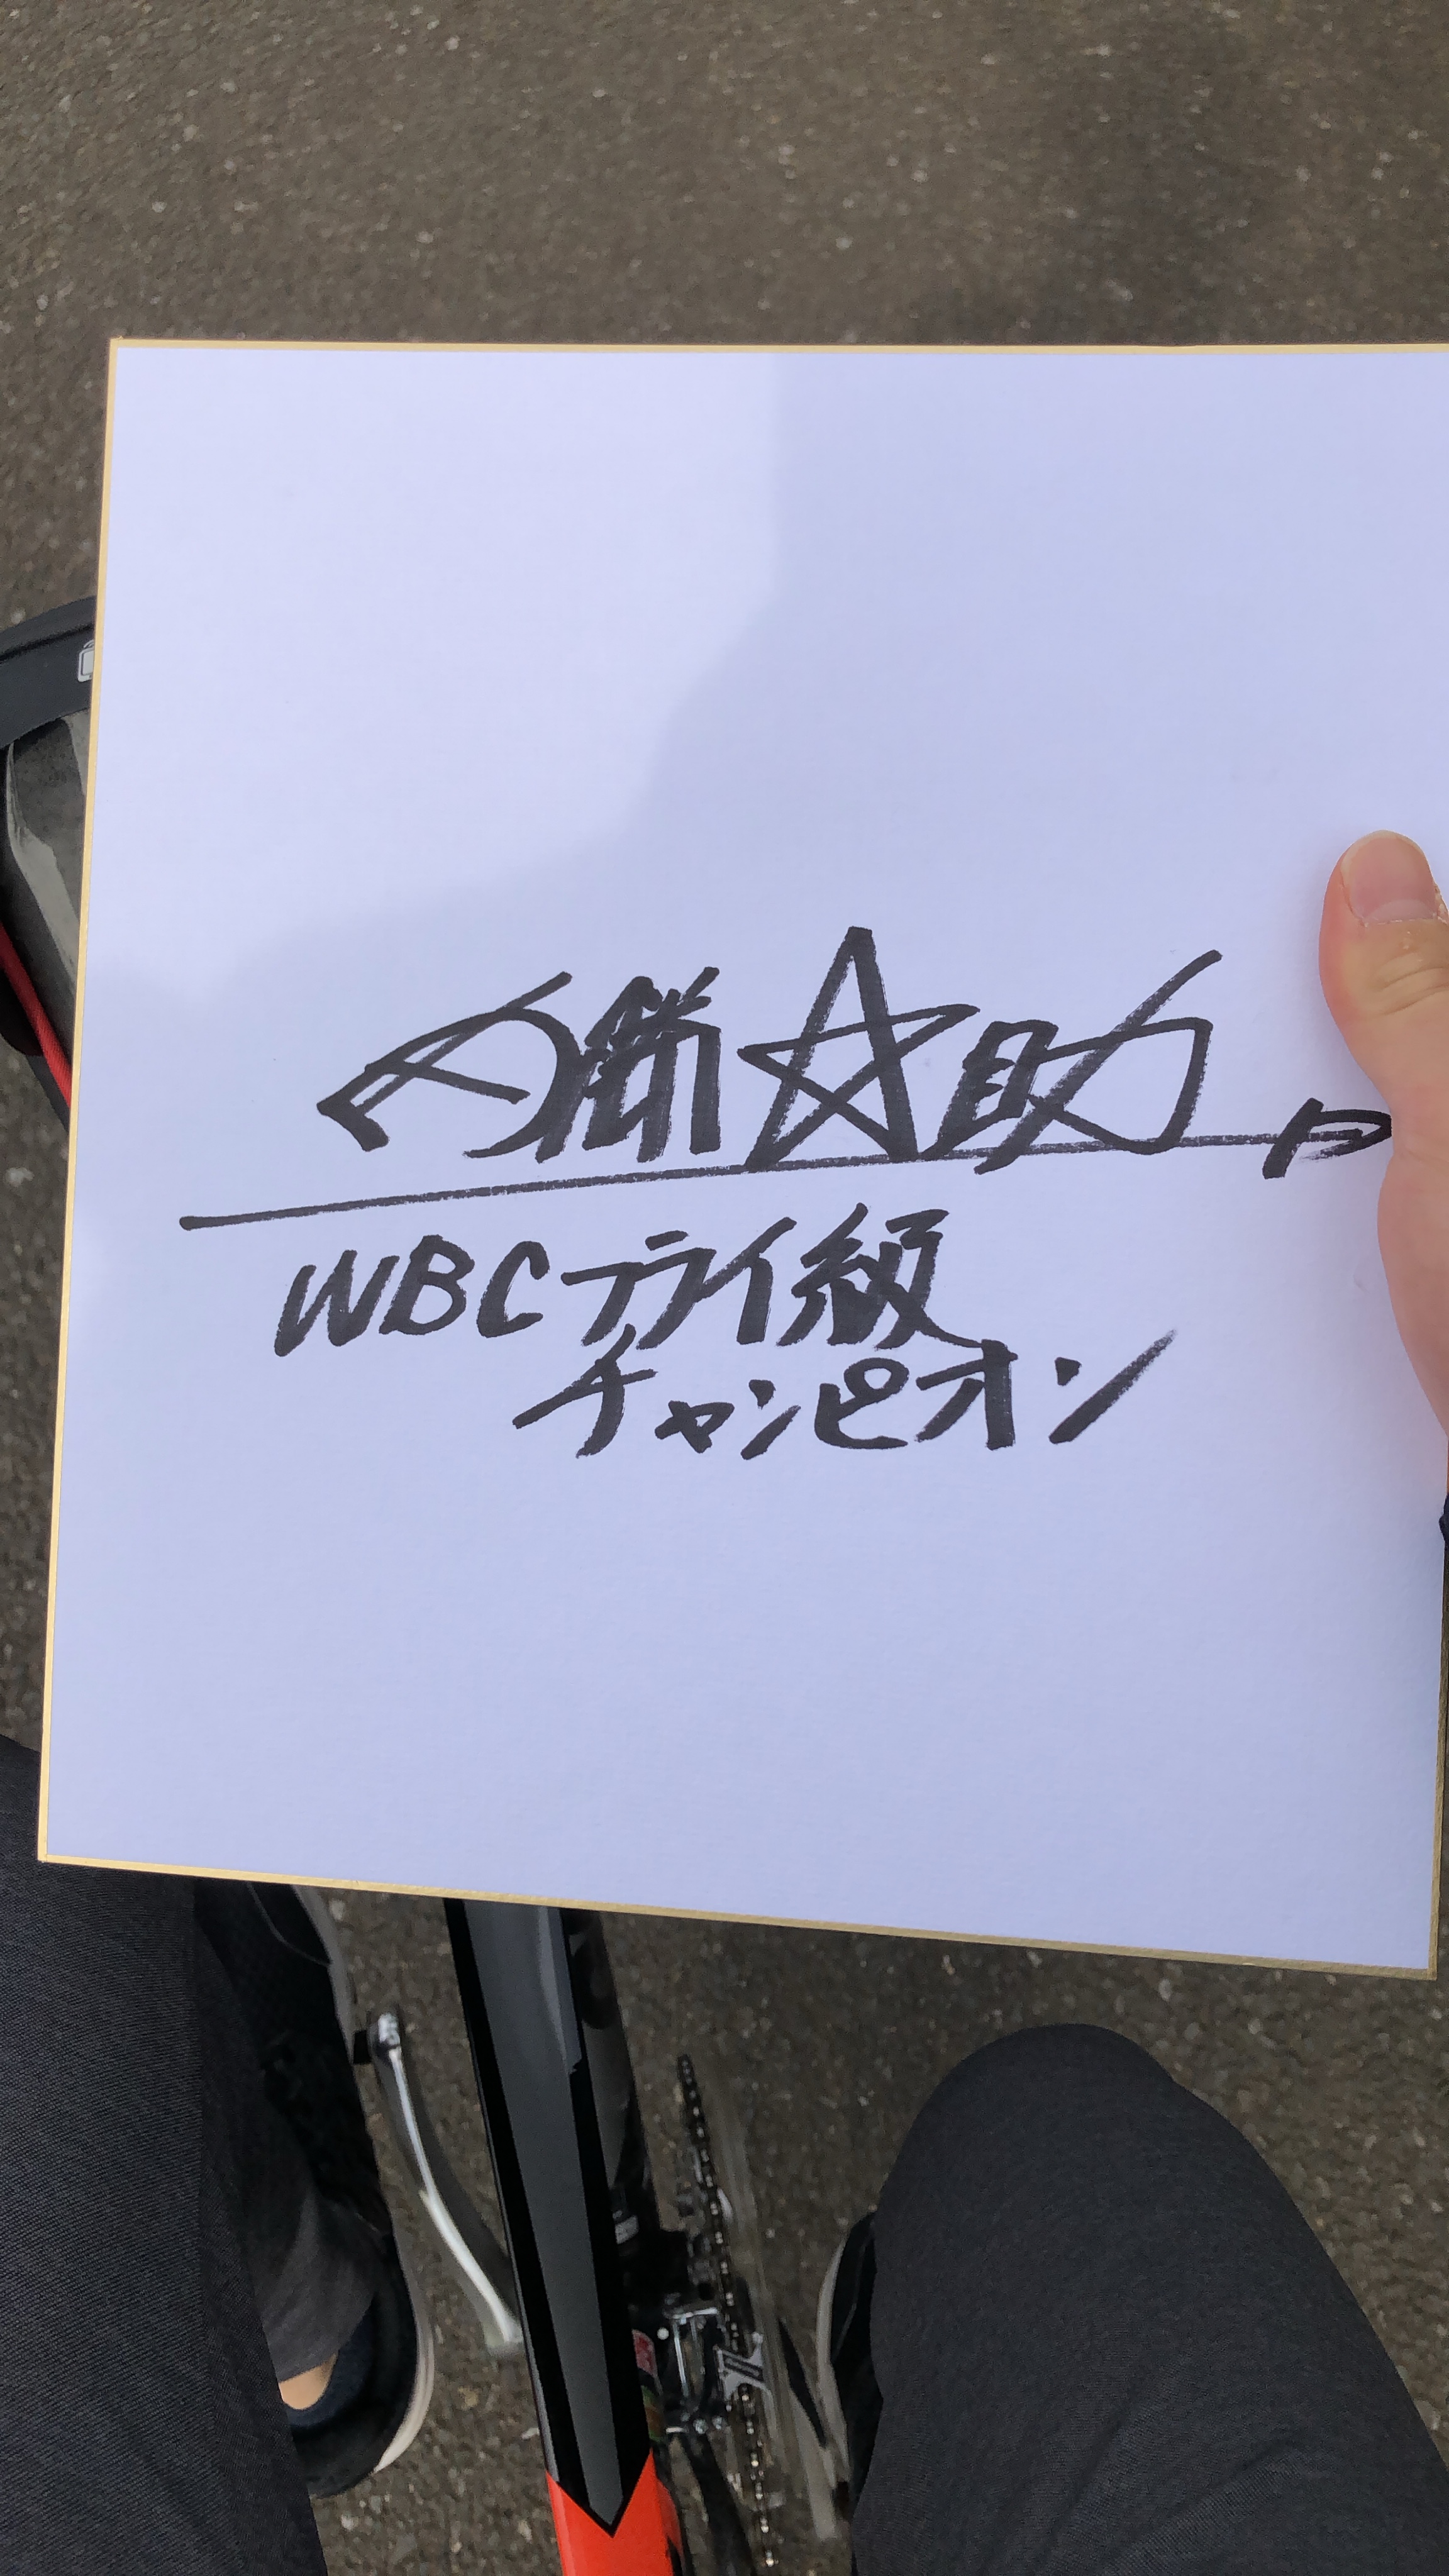 内藤☆助
WBCフライ級
チャンピオン